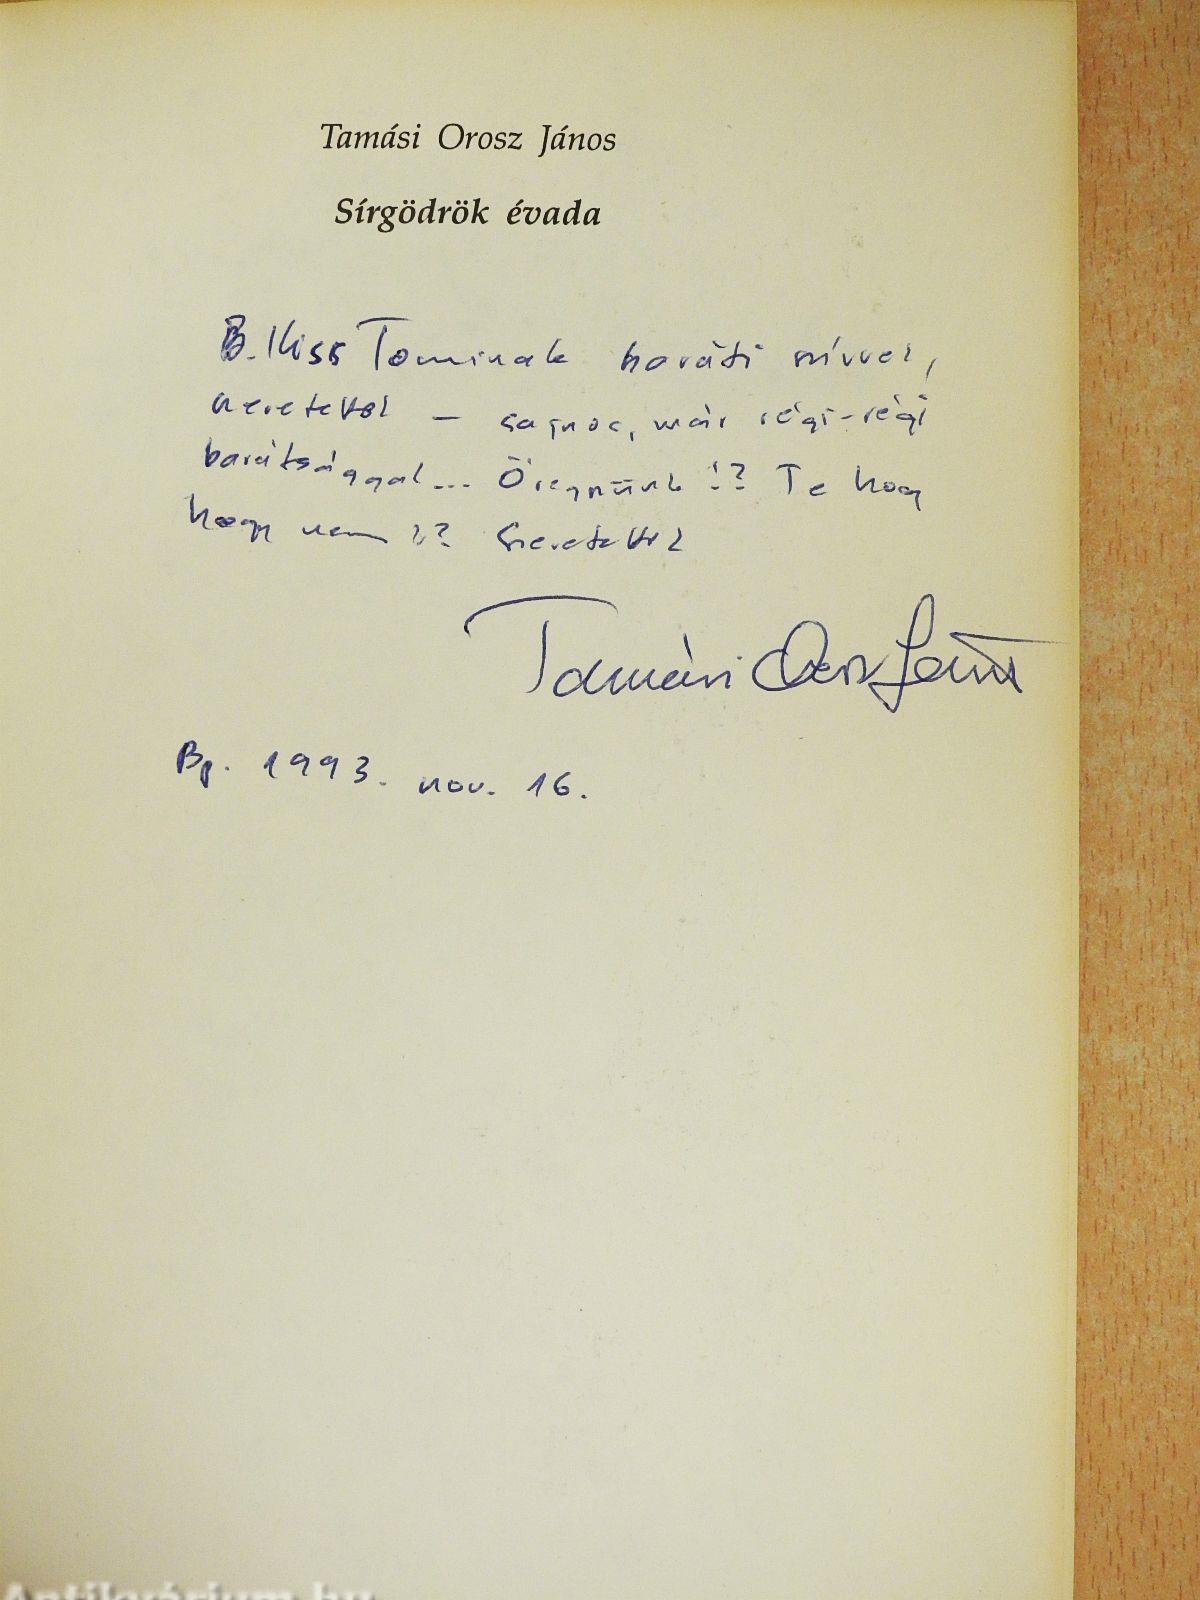 Tamási Orosz János
Sírgödrök évada
B. Kiss Tominak baráti szívvel,
szeretettel – sajnos, már régi-régi
barátsággal... Öregszünk!? Te hogy
hogy nem!? Szeretettel
Tamási Orosz János
Bp. 1993. nov. 16.
Antikvárium.hu